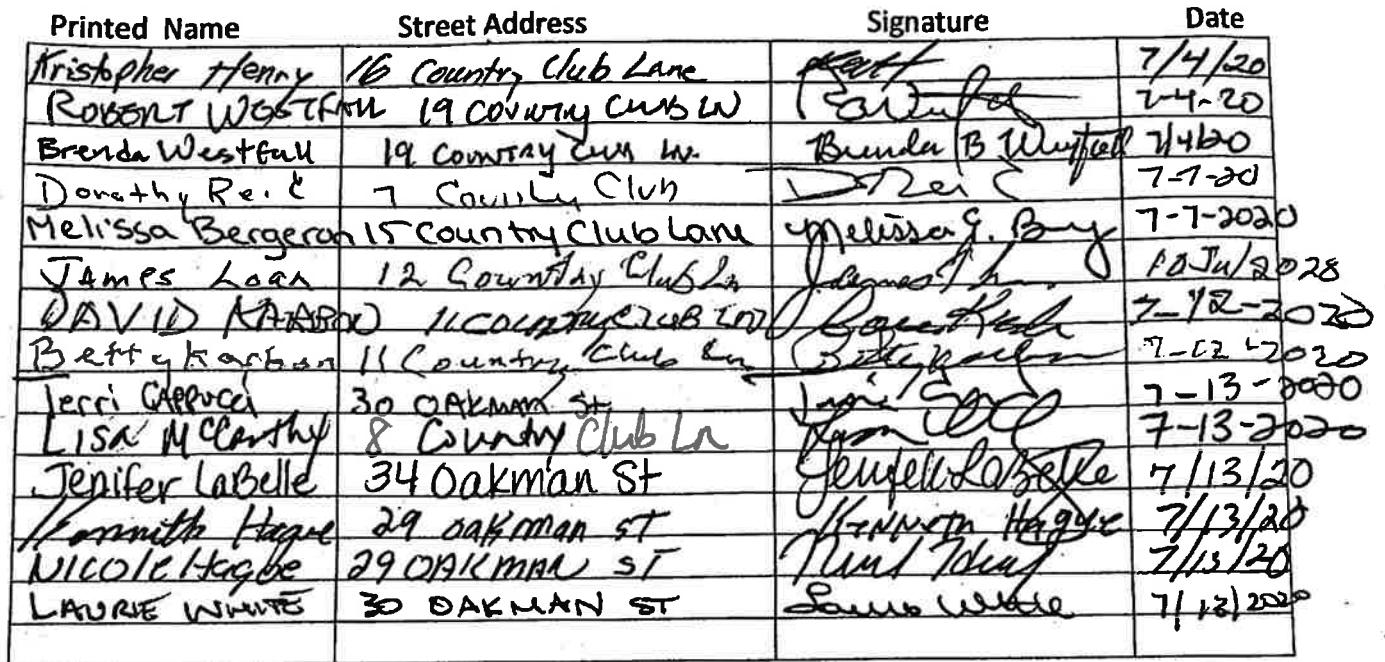 Printed Name Street Address Signature Date
Kristopher Henry 16 Country Club Lane 7/4/20
ROBERT WESTFALL 19 COUNTRY CLUB LN 7-4-20
Brenda Westfall 19 COUNTRY CLUB LN. Brenda B Westfall 7/4/20
Dorothy Reid 7 Country Club D Reid 7-7-20
Melissa Bergeron 15 Country Club Lane Melissa J. 7-7-2020
JAMES LOAN 12 Country Club Ln James
DAVID 11 COUNTRY CLUB LN 7-12-2020
Betty 11 Country Club Ln Betty 7-12-2020
Terri CAPPUCCI 30 OAKMAN St 7-13-2020
LISA McCarthy 8 Country Club Ln 7-13-2020
Jenifer LaBelle 34 Oakman St LaBelle 7/13/20
Kennith Hague 29 oakman ST Kenneth Hague 7/13/20
NICOLE Hague 29 OAKMAN ST 7/13/20
LAURIE WHITE 30 OAKMAN ST Laurie White 7/13/2020